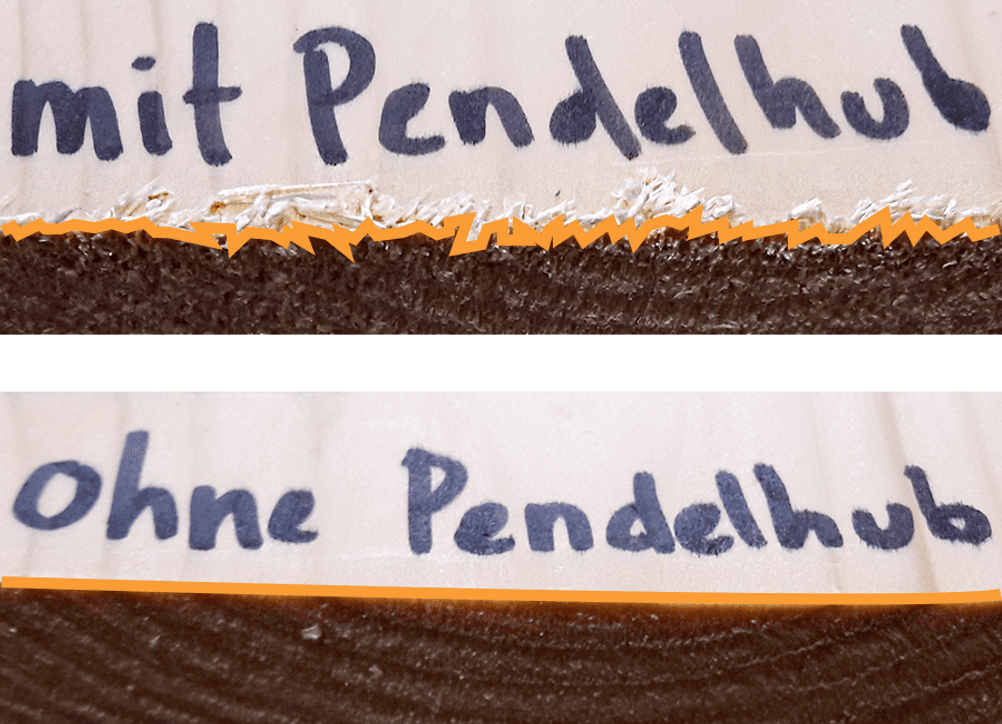 mit Pendelhub
Ohne Pendelhub